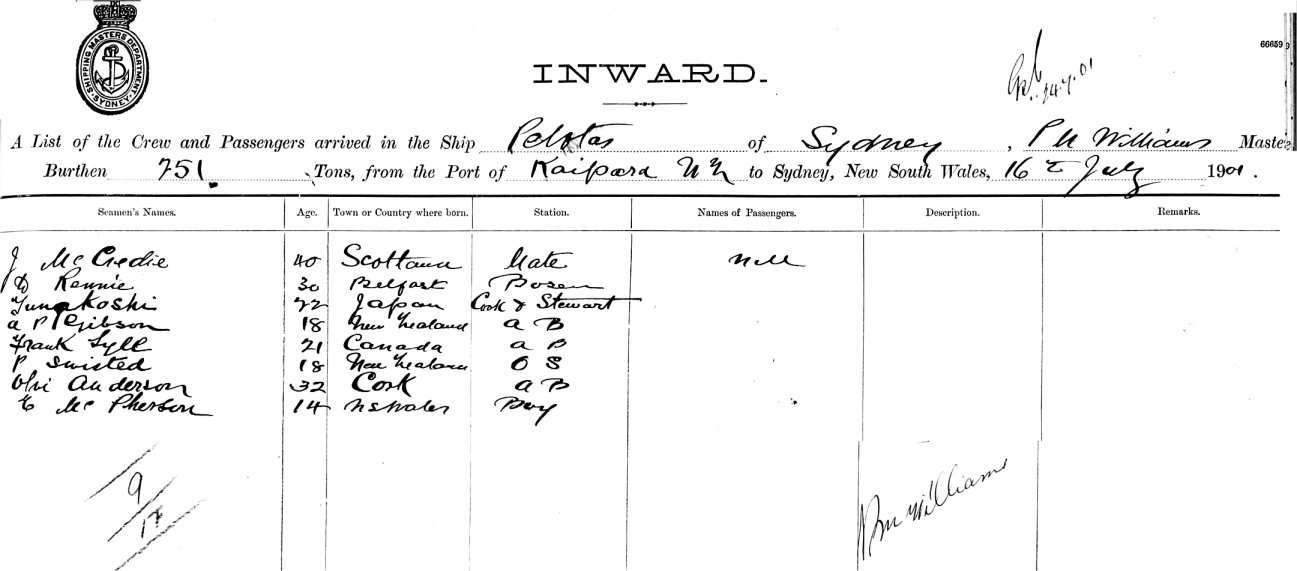 SHIPPING MASTERS DEPARTMENT. SYDNEY.
66659
INWARD.
24.7.01
A List of the Crew and Passengers arrived in the Ship Pelotas of Sydney, Williams Master
Burthen 751 Tons, from the Port of Kaipara NZ to Sydney, New South Wales, 16 July 1901.
Seamen's Names. Age. Town or Country where born. Station. Names of Passengers. Description. Remarks.
J McCredie 40 Scotland Mate Nill
Rennie 30 Belfast Bosen
22 Japan Cook & Stewart
A P Gibson 18 New Zealand A B
Frank 21 Canada A B
P Swisted 18 New Zealand O S
Anderson 32 Cork A B
McPherson 14 N S Wales Boy
9
17
Williams